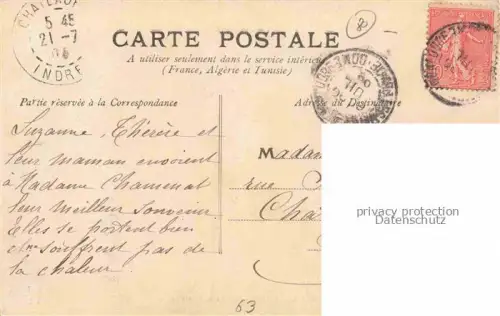 CHATEAUROUX
5 45
21-7
05
INDRE
CARTE POSTALE
A utiliser seulement dans le service intérieur
(France, Algérie et Tunisie)
Partie réservée à la Correspondance
Adresse du Destinataire
Suzanne, Thérèse et
leur maman envoient
à Madame Chamenat
leur meilleur souvenir
Elles se portent bien
et ne souffrent pas de
la chaleur
Madam
rue
Châ
privacy protection
Datenschutz
63